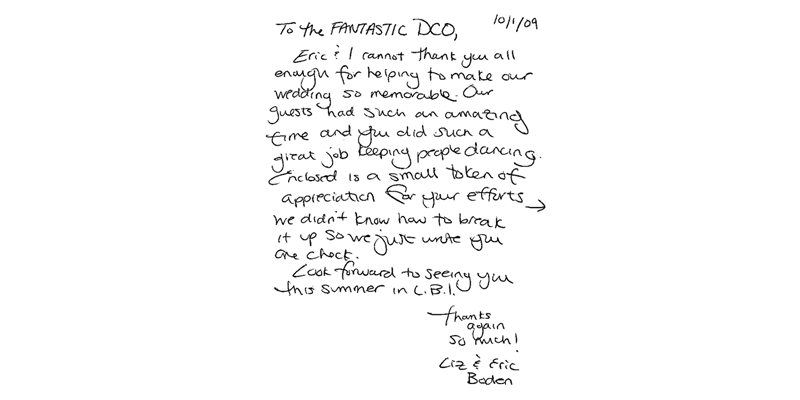 10/1/09
To the FANTASTIC DCO,
Eric & I cannot thank you all
enough for helping to make our
wedding so memorable. Our
guests had such an amazing
time and you did such a
great job keeping people dancing.
Enclosed is a small token of
appreciation for your efforts →
we didn't know how to break
it up so we just wrote you
one check.
Look forward to seeing you
this summer in L.B.I.
Thanks
again
so much!
Liz & Eric
Boden